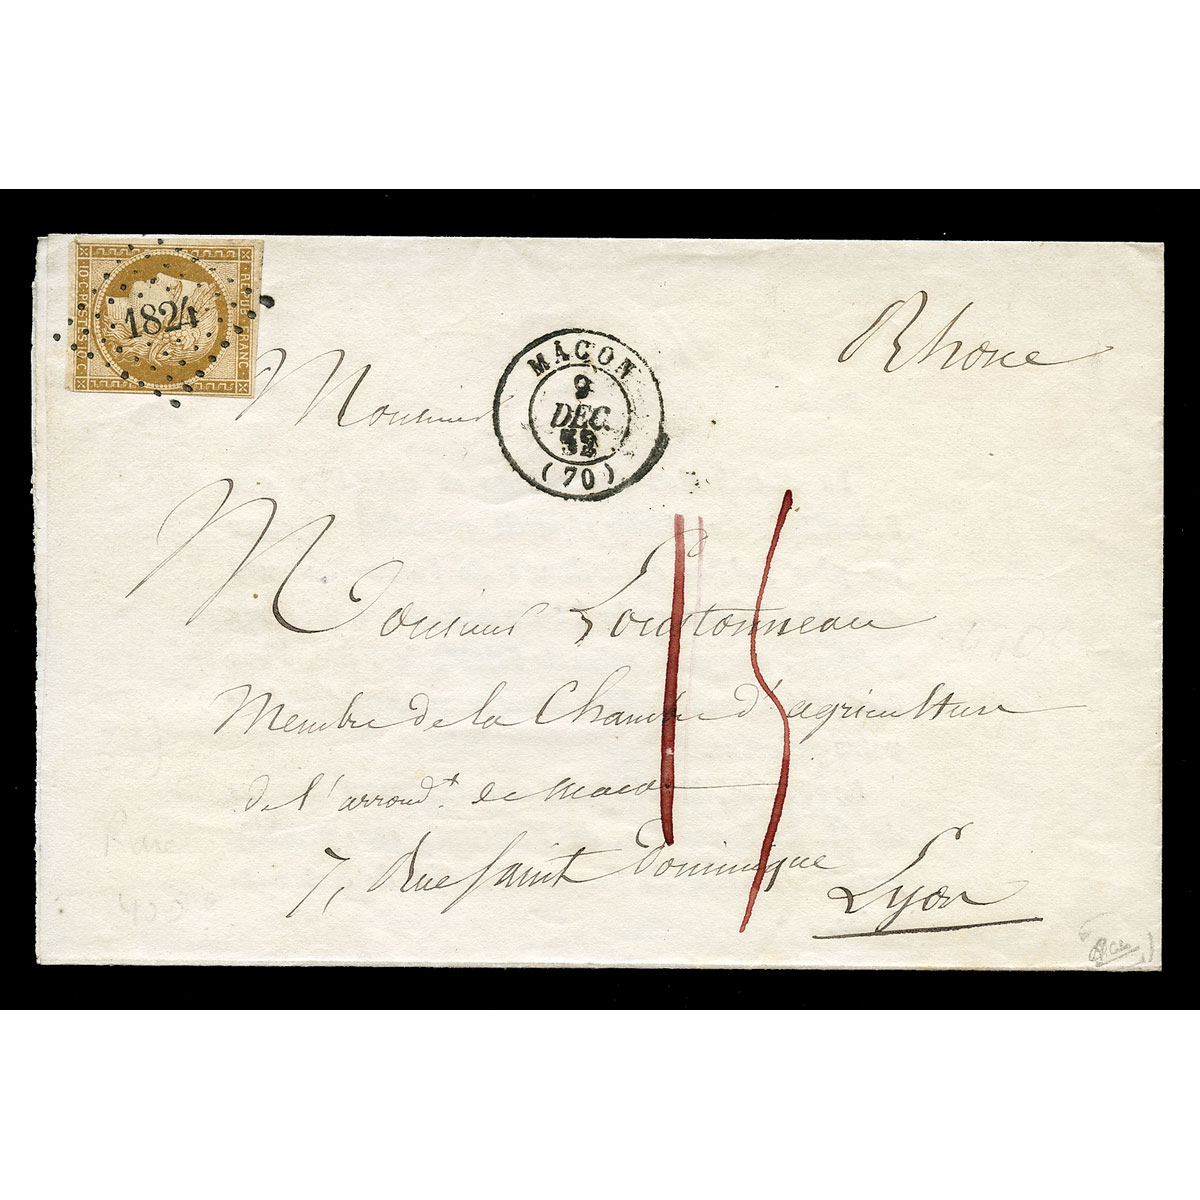 REPU. FRANC.
10.C.POSTES.10.C
1824
MACON
9
DEC.
52
(70)
Rhone
Monsieur
Monsieur Loustonneau
Membre de la Chambre d'agriculture
de l'arrondt. de Macon
7, Rue Saint Dominique
Lyon
15
Rare
400